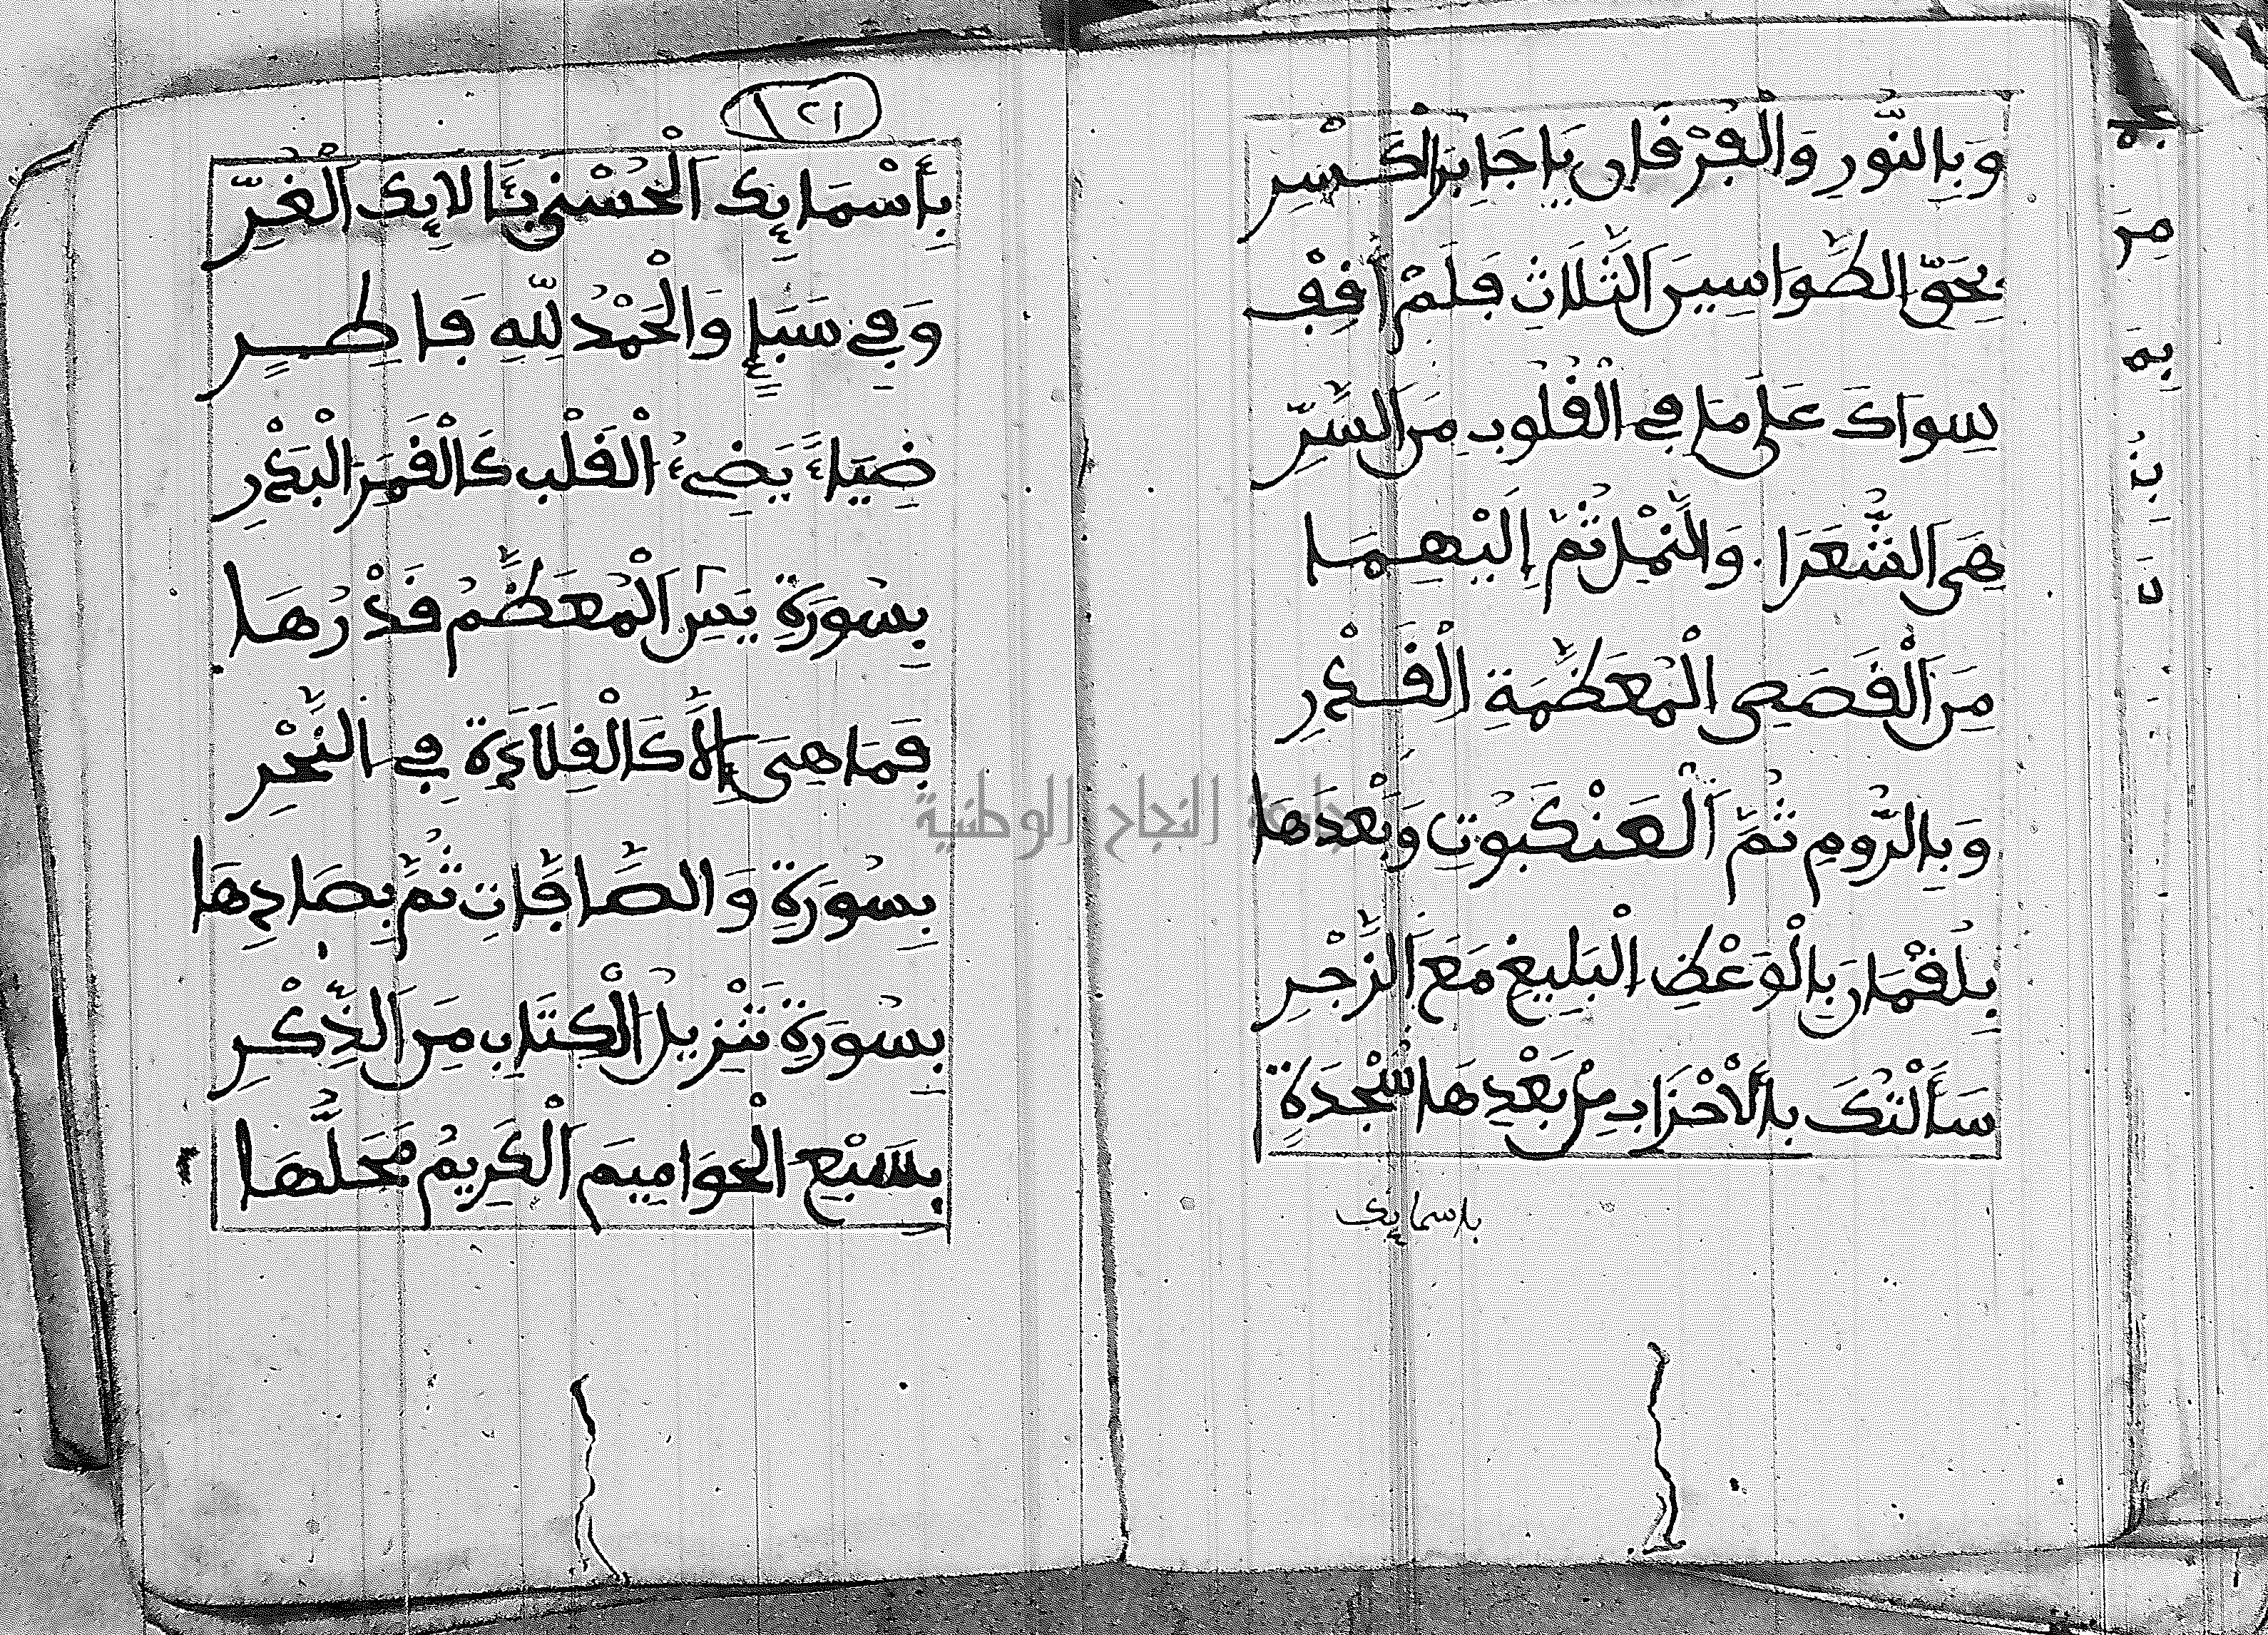 وَبِالنُّورِ وَالْفُرْقَانِ يَا جَابِرَ الْكَسْرِ
بِحَقِّ الطَّوَاسِينَ الثَّلَاثِ فَلَمْ أَقِفْ
سِوَاكَ عَلَى مَا فِي الْقُلُوبِ مِنَ السِّرِّ
هِيَ الشُّعَرَا وَالنَّمْلُ ثُمَّ إِلَيْهِمَا
مِنَ الْقَصَصِ الْمُعَظَّمَةِ الْقَدْرِ
وَبِالرُّومِ ثُمَّ الْعَنْكَبُوتِ وَبَعْدَهَا
بِلُقْمَانَ بِالْوَعْظِ الْبَلِيغِ مَعَ الزَّجْرِ
سَأَلْتُكَ بِالْأَحْزَابِ مِنْ بَعْدِهَا سَجْدَةٍ
باسمايك
١٢١
بِأَسْمَايِٕكَ الْحُسْنَى بِئَالَايِٕكَ الْغُرِّ
وَفِي سَبَإٍ وَالْحَمْدُ لِلَّهِ فَاطِرٍ
ضِيَاءً يُضِيءُ الْقَلْبَ كَالْقَمَرِ الْبَدْرِ
بِسُورَةِ يَسِنَ الْمُعَظَّمِ قَدْرُهَا
فَمَا هِيَ إِلَّا كَالْقِلَادَةِ فِي النَّحْرِ
بِسُورَةِ وَالصَّافَّاتِ ثُمَّ بِصَادِهَا
بِسُورَةِ تَنْزِيلُ الْكِتَابِ مِنَ الذِّكْرِ
بِسَبْعِ الْحَوَامِيمِ الْكَرِيمُ مَحَلُّهَا
جامعة النجاح الوطنية